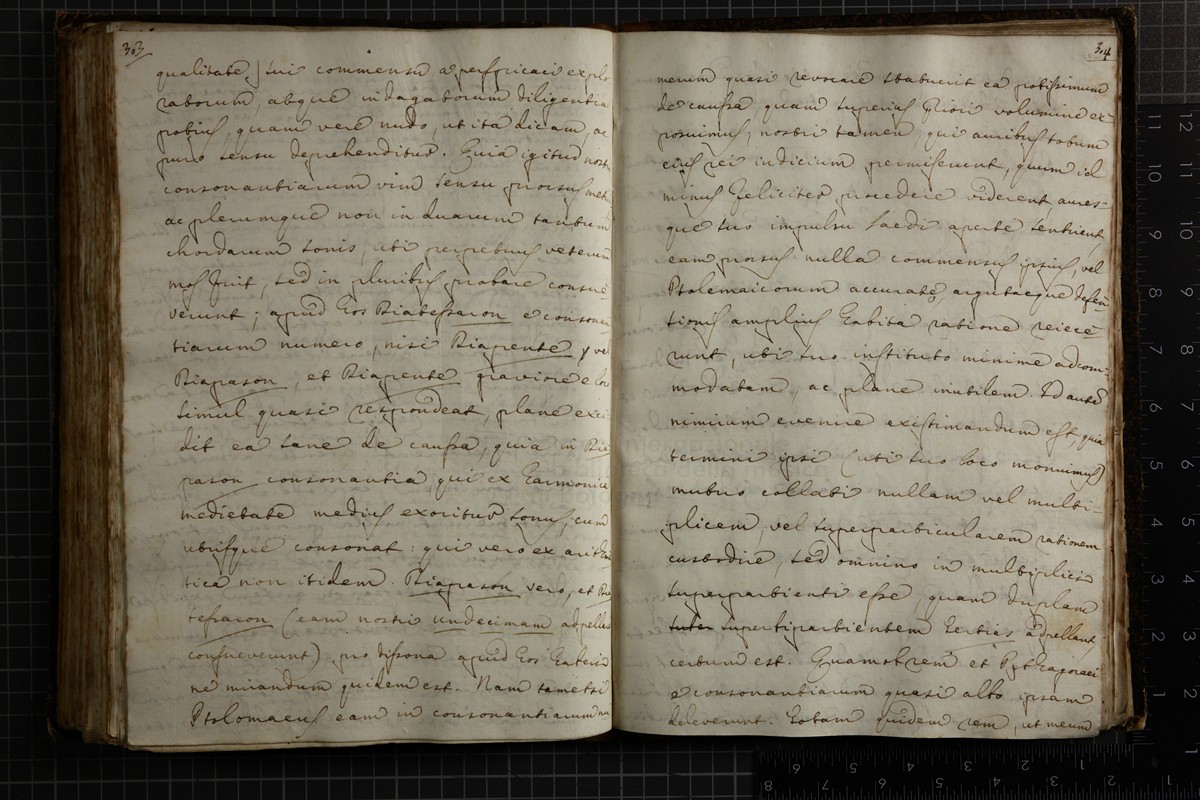 303
qualitate, sui commensu a perspicaci explo
ratorum, absque indagatorum diligentia
potius, quam vere nudo, ut ita dicam, ac
puro sensu deprehenditur. Quia igitur nostri
consonantiarum vim sensu prorsus
ac plerumque non in duarum tantum
chordarum sonis, uti perpetuus veterum
mos fuit, sed in pluribus probare consue-
verunt; apud hos Diatessaron e conson
tiarum numero, nisi Diapente, vel
Diapason, et Diapente graviore e lo
simul quasi respondeat, plane exci
dit ea sane de caussa, quia in Dia
pason consonantia, qui ex harmonica
medietate medius exoritur sonus, cum
utrisque consonat: qui vero ex arithme
tica non itidem. Diapason vero, et Dia
tessaron (eam nostri undecimam adpellar
consueverunt) pro dissona apud hos haberi
ne mirandum quidem est. Nam tametsi
Ptolomaeus eam in consonantiarum nu
304
merum quasi revocare statuerit ea potissimum
de caussa, quam superius priori volumine ex-
posuimus; nostri tamen, qui auribus totum
eius rei iudicium permiserunt, quum id
minus feliciter procedere viderent, aures-
que suo impulsu laedi aperte sentirent,
eam prorsus nulla commensus ipsius, vel
Ptolemaicorum accurate, argutaeque defen-
tionis amplius habita ratione reiece-
runt, uti suo instituto minime adcom-
modatam, ac plane inutilem. Id autem
nimirum evenire existimandum est, quia
termini ipsi (uti suo loco monuimus)
mutuo collati nullam vel multi-
plicem, vel superparticularem rationem
custodire, sed omnino in multiplici
superpartienti esse, quam duplam
super supertipartientem tertias adpellant,
certum est. Quamobrem et Pythagoraei
e consonantiarum quasi albo ipsam
deleverunt. Totam quidem rem, ut meum